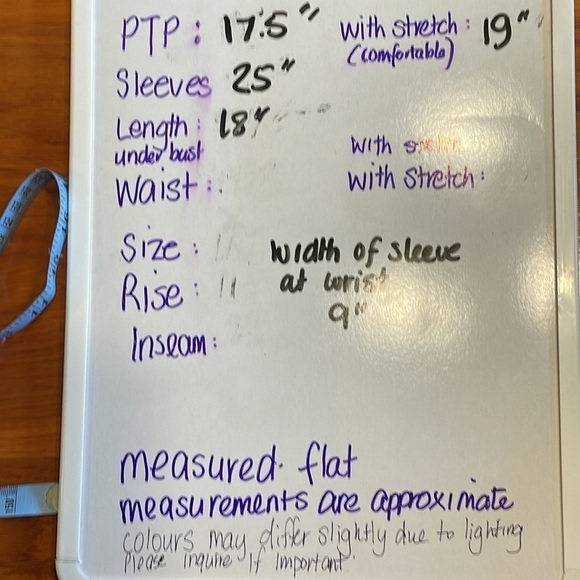 PTP: 17.5" with stretch: 19"
(comfortable)
Sleeves 25"
Length: 18"
under bust
With
Waist: With stretch:
Size: Width of sleeve
Rise: at wrist
9"
Inseam:
measured flat
measurements are approximate
colours may differ slightly due to lighting
Please inquire if important